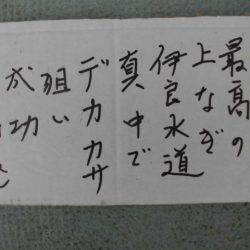 最高の
上なぎ
伊良水道
真中で
デカカサ
狙い
成功